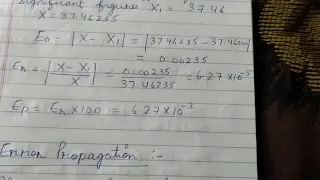 significant figure X₁ = 37.46
X = 37.46235
Ea = |X - X₁| = |37.46235 - 37.46000|
= 0.00235
Er = |X - X₁ / X| = 0.00235 / 37.46235 = 6.27×10⁻⁵
Ep = Er×100 = 6.27×10⁻³
Error Propagation :-